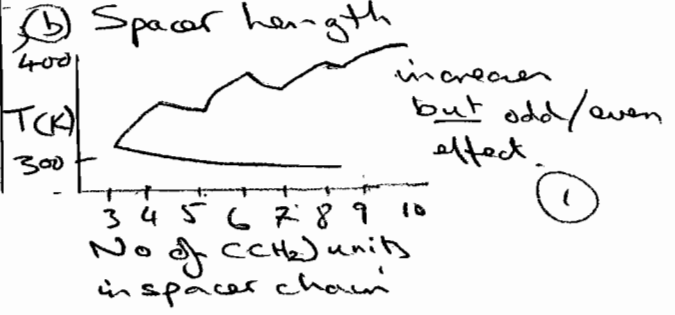 (b) Spacer Length
400
increases
but odd/even
effect.
T(K)
300
1
3 4 5 6 7 8 9 10
No of (CH2) units
in spacer chain